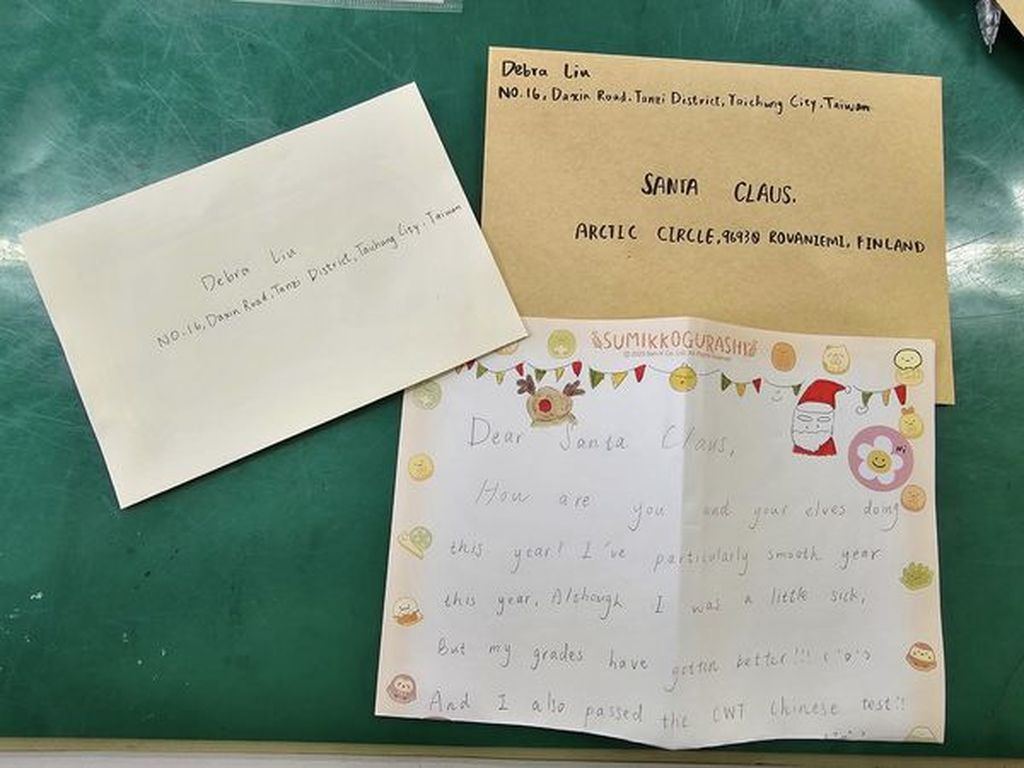 Debra Liu
NO.16, Daxin Road, Tanzi District, Taichung City, Taiwan
Debra Liu
NO.16, Daxin Road, Tanzi District, Taichung City, Taiwan
SANTA CLAUS.
ARCTIC CIRCLE, 96930 ROVANIEMI, FINLAND
SUMIKKOGURASHI
Dear Santa Claus,
Hi
How are you and your elves doing
this year? I've particularly smooth year
this year. Although I was a little sick,
But my grades have gottin better!!!
And I also passed the CWT Chinese test!!